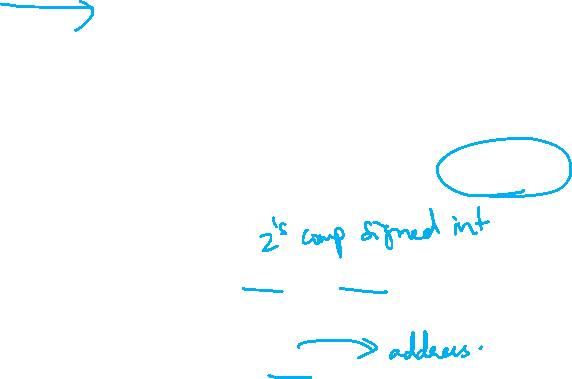 2's comp signed int
address.